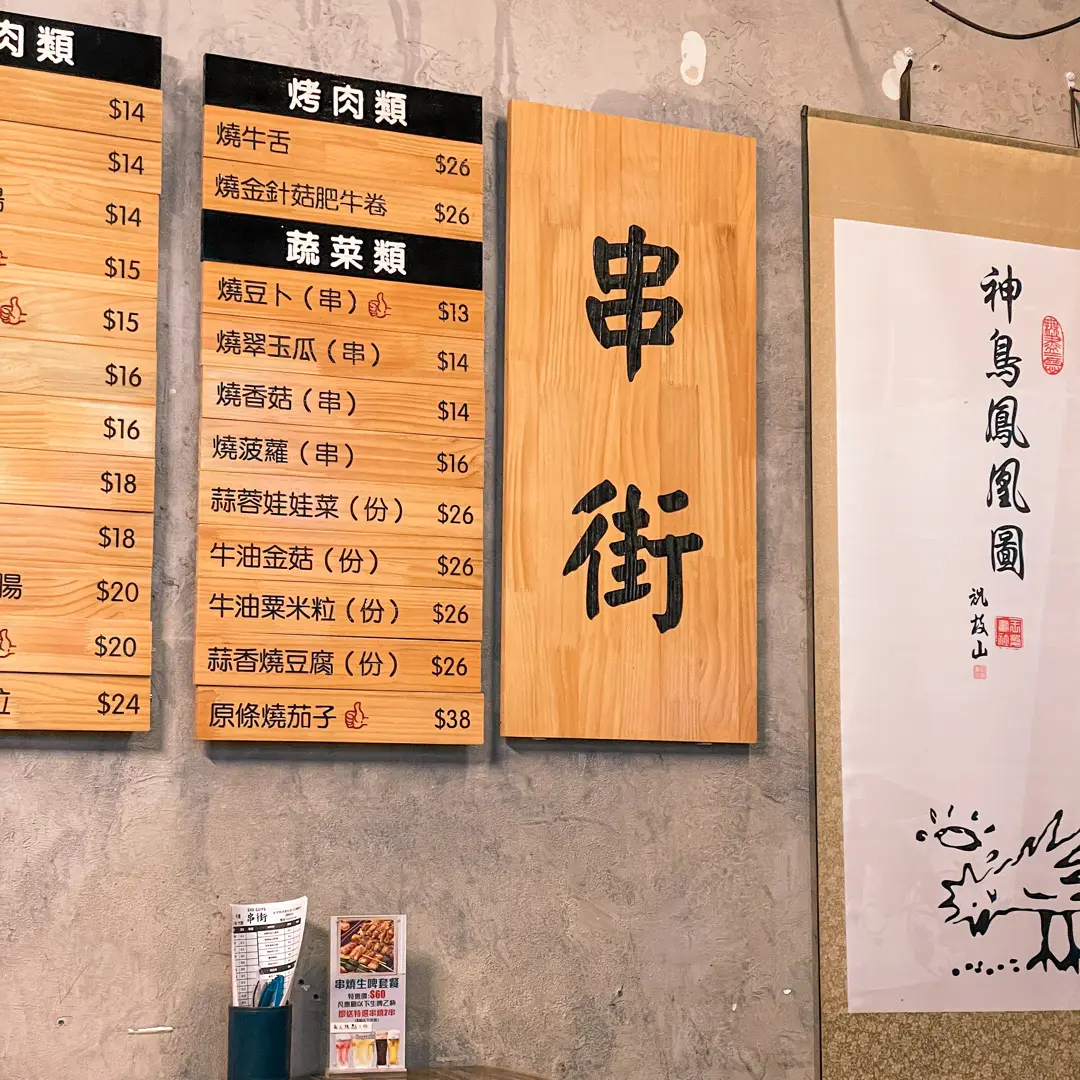 肉類
$14
$14
腸 $14
$15
$15
$16
$16
$18
$18
腸 $20
$20
粒 $24
烤肉類
燒牛舌 $26
燒金針菇肥牛卷 $26
蔬菜類
燒豆卜（串） $13
燒翠玉瓜（串） $14
燒香菇（串） $14
燒菠蘿（串） $16
蒜蓉娃娃菜（份） $26
牛油金菇（份） $26
牛油粟米粒（份） $26
蒜香燒豆腐（份） $26
原條燒茄子 $38
串街
神鳥鳳凰圖
祝枝山
串街
串燒生啤套餐
特惠價:$60
凡惠顧以下生啤乙杯
即送特選串燒2串